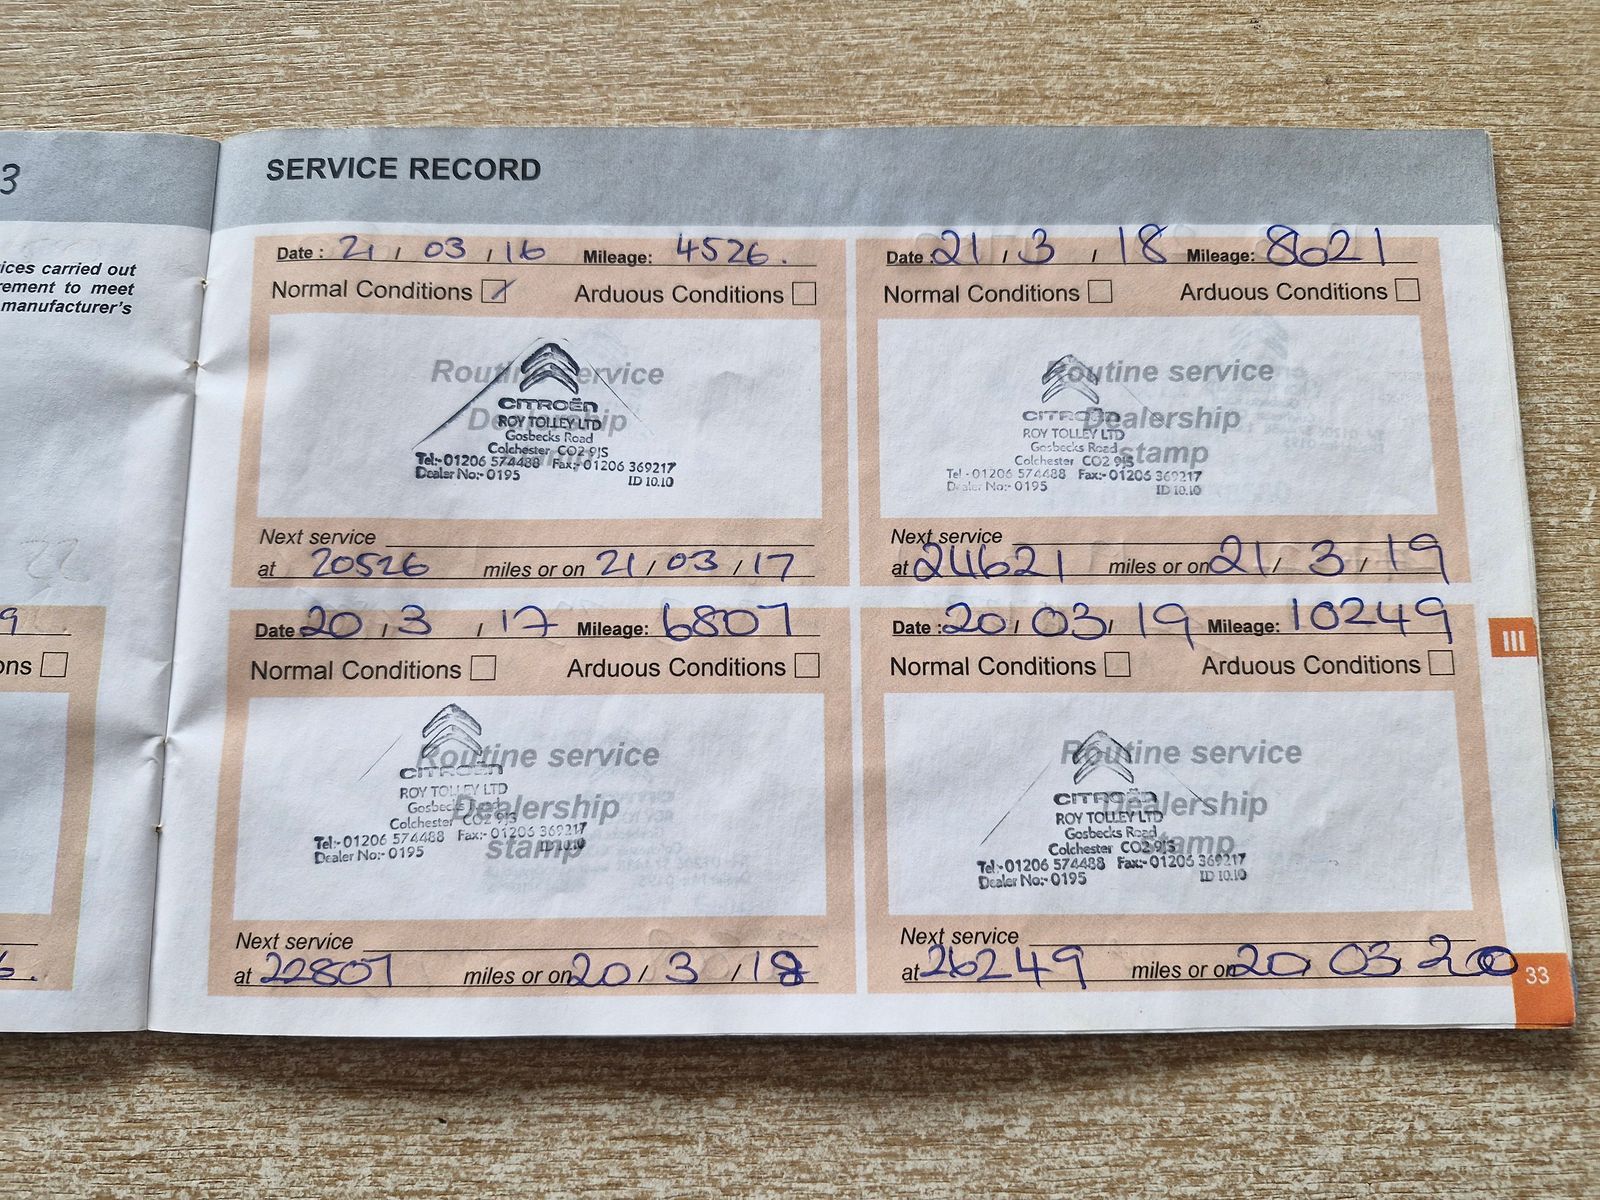 3
ices carried out
rement to meet
manufacturer's
9
ons
6.
SERVICE RECORD
Date : 21 / 03 / 16 Mileage: 4526.
Normal Conditions Arduous Conditions
Routine service
Dealership
CITROËN
ROY TOLLEY LTD
Gosbecks Road
Colchester CO2 9JS
Tel:- 01206 574488 Fax:- 01206 369217
Dealer No:- 0195 ID 10.10
Next service
at 20526 miles or on 21 / 03 / 17
Date 20 / 3 / 17 Mileage: 6807
Normal Conditions Arduous Conditions
Routine service
Dealership
stamp
CITROËN
ROY TOLLEY LTD
Gosbecks Road
Colchester CO2 9JS
Tel:- 01206 574488 Fax:- 01206 369217
Dealer No:- 0195 ID 10.10
Next service
at 22807 miles or on 20 / 3 / 18
Date : 21 / 3 / 18 Mileage: 8621
Normal Conditions Arduous Conditions
Routine service
Dealership
stamp
CITROËN
ROY TOLLEY LTD
Gosbecks Road
Colchester CO2 9JS
Tel:- 01206 574488 Fax:- 01206 369217
Dealer No:- 0195 ID 10.10
Next service
at 24621 miles or on 21 / 3 / 19
Date : 20 / 03 / 19 Mileage: 10249
Normal Conditions Arduous Conditions
Routine service
Dealership
stamp
CITROËN
ROY TOLLEY LTD
Gosbecks Road
Colchester CO2 9JS
Tel:- 01206 574488 Fax:- 01206 369217
Dealer No:- 0195 ID 10.10
Next service
at 26249 miles or on 20 / 03 / 20
III
33